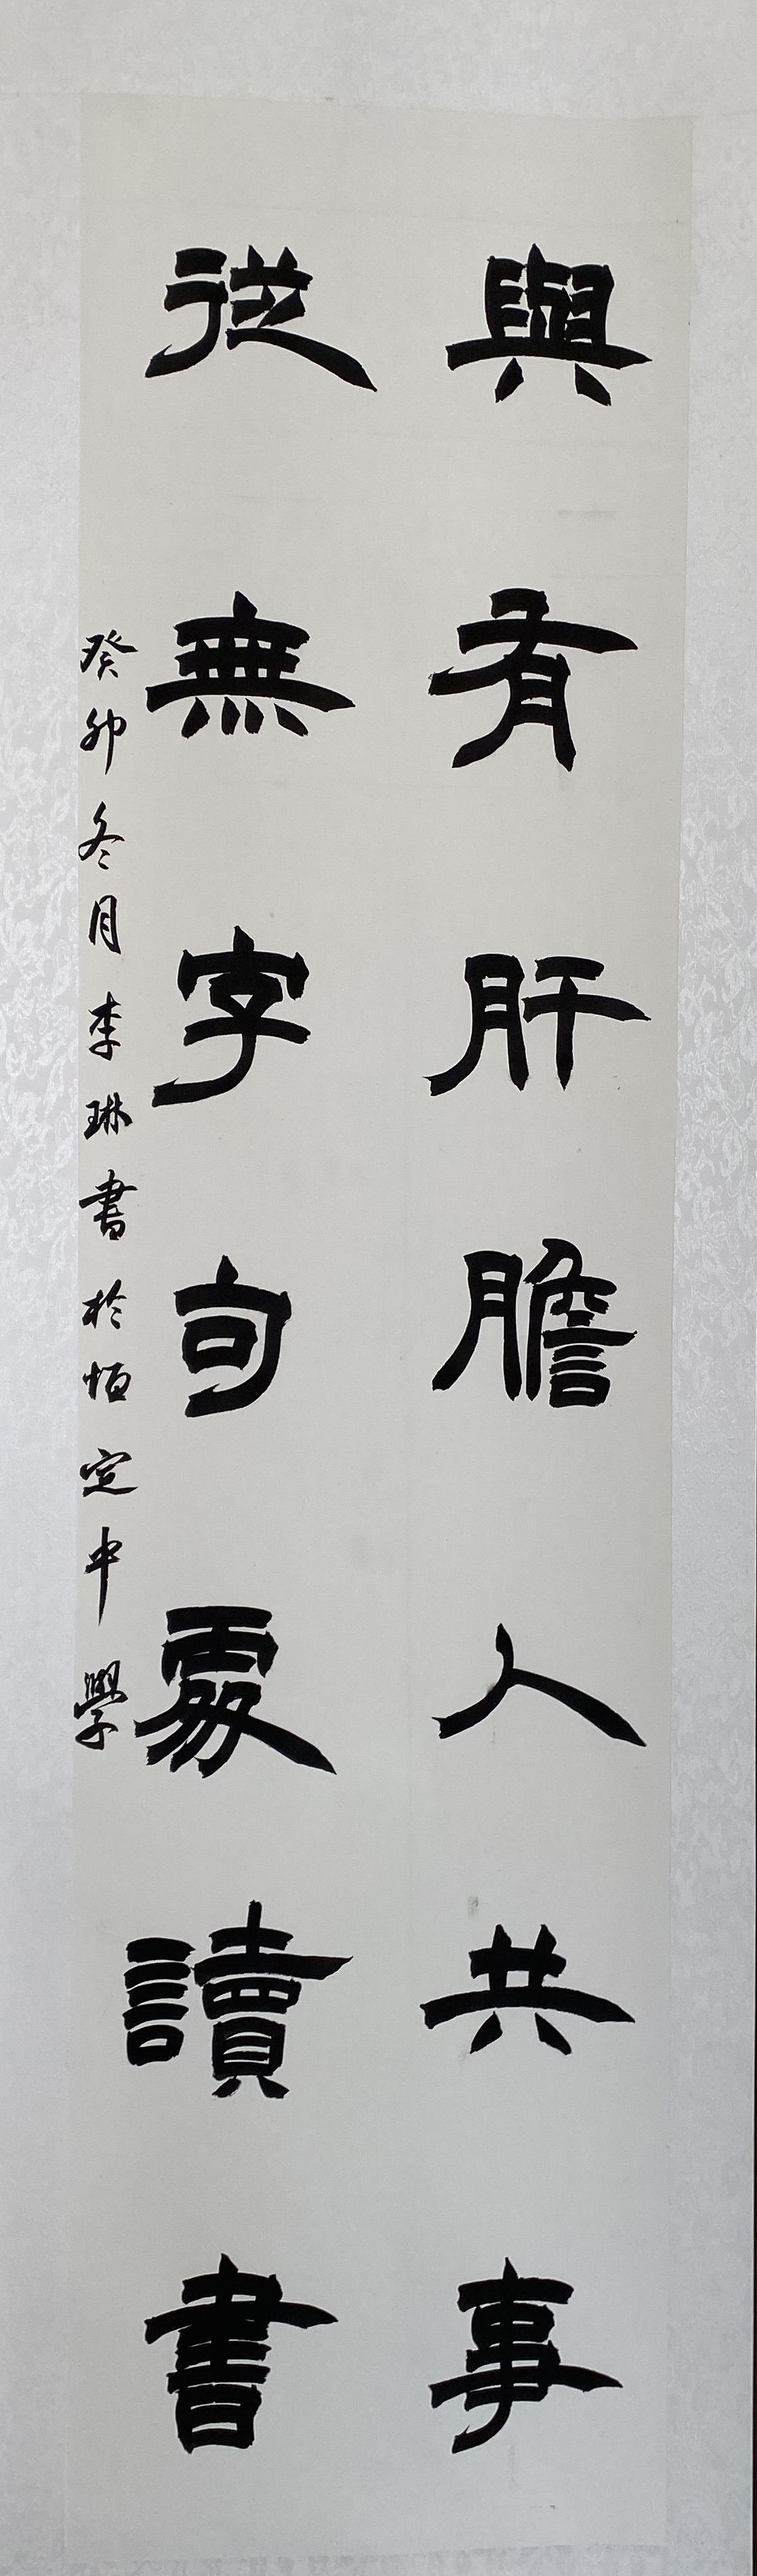 與有肝膽人共事
從無字句處讀書
癸卯冬月李琳書於恒定中學